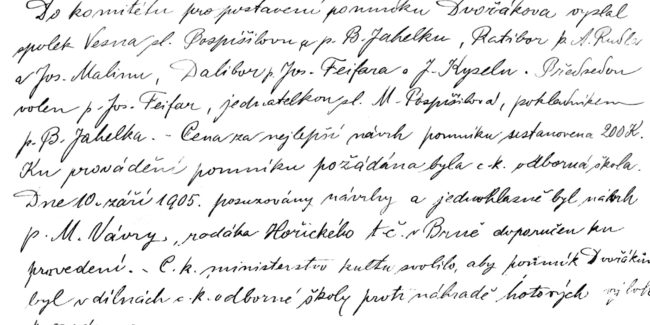 Do komitétu pro postavení pomníku Dvořákova vyslal
spolek Vesna sl. Pospíšilovu a p. B. Jahelku, Ratibor p. A. Rudla
a Jos. Malinu, Dalibor p. Jos. Feifara a J. Kyselu. Předsedou
volen p. Jos. Feifar, jednatelkou sl. M. Pospíšilová, pokladníkem
p. B. Jahelka. - Cena za nejlepší návrh pomníku sustanovena 200 K.
Ku provádění pomníku požádána byla c. k. odborná škola.
Dne 10. září 1905. posuzovány návrhy a jednohlasně byl návrh
p. M. Vávry, rodáka Hořického t. č. v Brně doporučen ku
provedení. - C. k. ministerstvo kultu svolilo, aby pomník Dvořákův
byl v dílnách c. k. odborné školy proti náhradě hotových